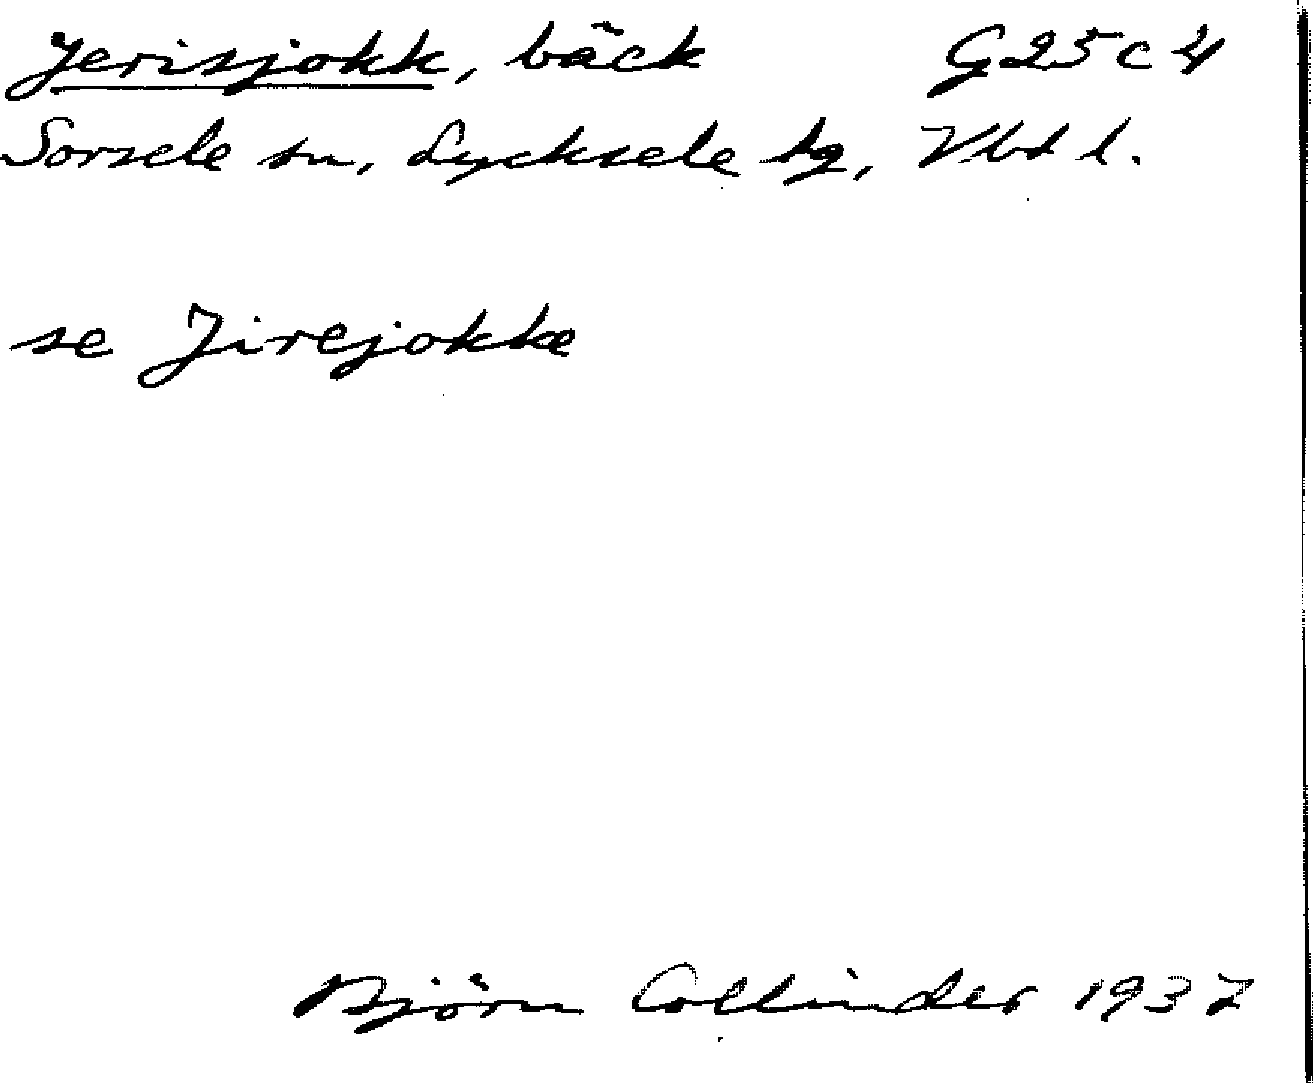 Jerisjokk, bäck G25c4
Sorsele sn, Lycksele tg, Vbt l.
se Jirejokke
Björn Collinder 1937